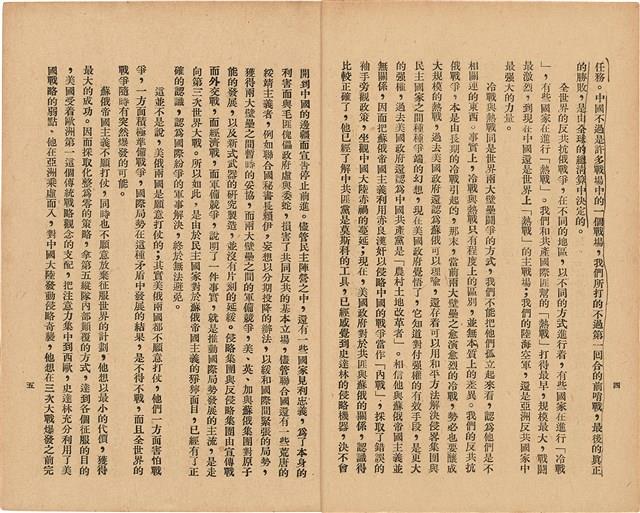 任務。中國不過是許多戰場中的一個戰場，我們所打的不過第一回合的前哨戰，最後的眞正
的勝敗，是由全球的總淸算中決定的。
全世界的反共抗俄戰爭，在不同的地區，以不同的方式進行着，有些國家在進行「冷戰
」，有些國家在進行「熱戰」。我們和共產國際匪幫的「熱戰」打得最早，規模最大，戰鬪
最激烈，到現在中國還是世界上「熱戰」的主戰場；我們的陸海空軍，還是亞洲反共國家中
最强大的力量。
冷戰與熱戰同是世界兩大壁壘鬪爭的方式，我們不能把他們孤立起來看，認爲他們是不
相關連的東西。事實上，冷戰與熱戰只有程度上的區別，並無本質上的差異。我們的反共抗
俄戰爭，本是由長期的冷戰引起的，那末，當前兩大壁壘之愈演愈烈的冷戰，勢必也要釀成
大規模的熱戰，過去美國政府還認爲蘇俄可以理喻，還存着可以用和平方法解決侵畧集團與
民主國家之間種種爭端的幻想，現在美國政府覺悟了，它知道對付强權的有效手段，是更大
的强權，過去美國政府還認爲中國共產黨是「農村土地改革者」。相信他與蘇俄帝國主義並
無關係，因而把蘇俄帝國主義利用赤良漢奸以侵略中國的戰爭當作「內戰」，採取了錯誤的
袖手旁觀政策，坐觀中國大陸赤禍的蔓延；現在，美國政府對於共匪與蘇俄的關係，認識得
比較正確了，他已經了解中共匪黨是莫斯科的工具，已經感覺到史達林的侵略機器，決不會
四
開到中國的邊疆而宣告停止前進。儘管民主陣營之中，還有一些國家見利忘義，爲了本身的
利害而與毛匪傀儡政府虛與委蛇，損害了共同反共的基本立場，儘管聯合國還有一些荒唐的
綏靖主義者，例如聯合國秘書長賴伊，妄想以分期投降的辦法，以緩和國際間緊張的局勢，
獲得兩大壁壘之間暫時的妥協，而兩大壁壘之間的軍備競爭，美、英、加與蘇俄集團對原子
能的發展，以及新式武器的研究製造，並沒有片刻的延緩。侵略集團與反侵略集團由宣傳戰
而外交戰，而經濟戰，而軍備競爭，說明了一件事實，就是推動國際局勢發展的主流，是走
向第三次世界大戰。所以如此，是由於民主國家對於蘇俄帝國主義的猙獰面目，已經有了正
確的認識，認爲國際紛爭的軍事解決，終於無法避免。
這並不是說，美俄兩國是願意打仗的；其實美俄兩國都不願意打仗，他們一方面害怕戰
爭，一方面積極準備戰爭，國際局勢在這種矛盾中發展的結果，是不得不戰，而且全世界的
戰爭隨時有突然爆發的可能。
蘇俄帝國主義不願打仗，同時也不願意放棄征服世界的計劃，他想以最小的代價，獲得
最大的成功。因而採取化整爲零的策略，拿第五縱隊內部顚覆的方式，達到各個征服的目的
，美國受着歐洲第一這個傳統戰略觀念的支配，把注意力集中到西歐，史達林充分利用了美
國戰略的弱點，他在亞洲乘虛而入，對中國大陸發動侵略奇襲，他想在三次大戰爆發之前完
五